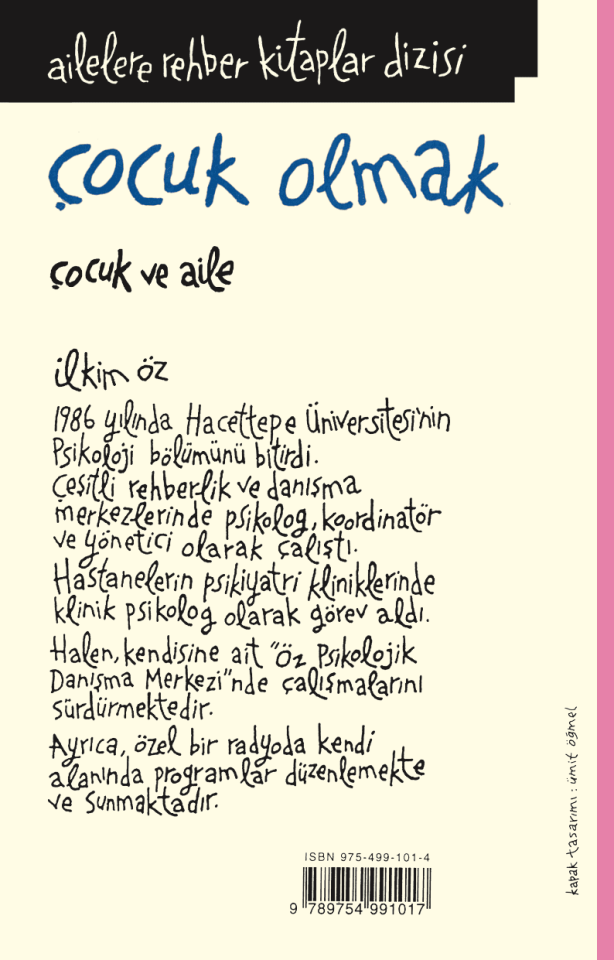 ailelere rehber kitaplar dizisi
çocuk olmak
çocuk ve aile
ilkim öz
1986 yılında Hacettepe Üniversitesi'nin
Psikoloji bölümünü bitirdi.
Çeşitli rehberlik ve danışma
merkezlerinde psikolog, koordinatör
ve yönetici olarak çalıştı.
Hastanelerin psikiyatri kliniklerinde
klinik psikolog olarak görev aldı.
Halen, kendisine ait "Öz Psikolojik
Danışma Merkezi"nde çalışmalarını
sürdürmektedir.
Ayrıca, özel bir radyoda kendi
alanında programlar düzenlemekte
ve sunmaktadır.
kapak tasarımı: ümit öğmel
ISBN 975-499-101-4
9 789754 991017